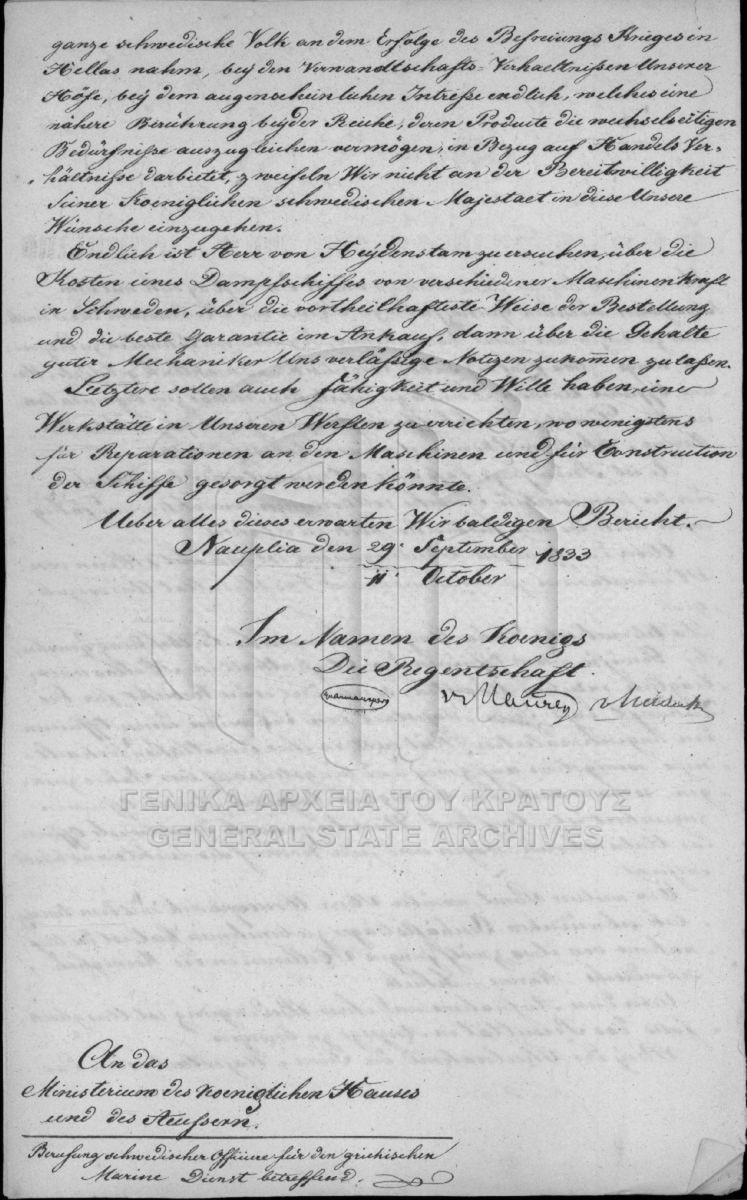 ganze schwedische Volk an dem Erfolge des Befreiungs Krieges in
Hellas nahm, bey den Verwandtschafts-Verhaeltnißen Unserer
Höfe, bey dem augenscheinlichen Intreße endlich, welches eine
nähere Berührung beyder Reiche, deren Producte die wechselseitigen
Bedürfniße auszugleichen vermögen, in Bezug auf Handels Ver-
hältniße darbietet, zweifeln Wir nicht an der Bereitwilligkeit
Seiner Koeniglichen schwedischen Majestaet in diese Unsere
Wünsche einzugehen.
Endlich ist Herr von Heydenstam zu ersuchen, über die
Kosten eines Dampfschiffes von verschiedener Maschinenkraft
in Schweden, über die vortheilhafteste Weise der Bestellung
und die beste Garantie im Ankauf, dann über die Gehalte
guter Mechaniker Uns verläßige Notizen zukommen zu laßen.
Letztere sollen auch Fähigkeit und Wille haben, eine
Werkstätte in Unseren Werften zu errichten, wo wenigstens
für Reparationen an den Maschinen und für Construction
der Schiffe gesorgt werden könnte.
Ueber alles dieses erwarten Wir baldigen Bericht.
Nauplia den 29. September 1833
11. October
Im Namen des Koenigs
Die Regentschaft.
v. Maurer
ΓΕΝΙΚΑ ΑΡΧΕΙΑ ΤΟΥ ΚΡΑΤΟΥΣ
GENERAL STATE ARCHIVES
An das
Ministerium des Koeniglichen Hauses
und des Aeussern.
Berufung schwedischer Officiere für den griechischen
Marine Dienst betreffend.